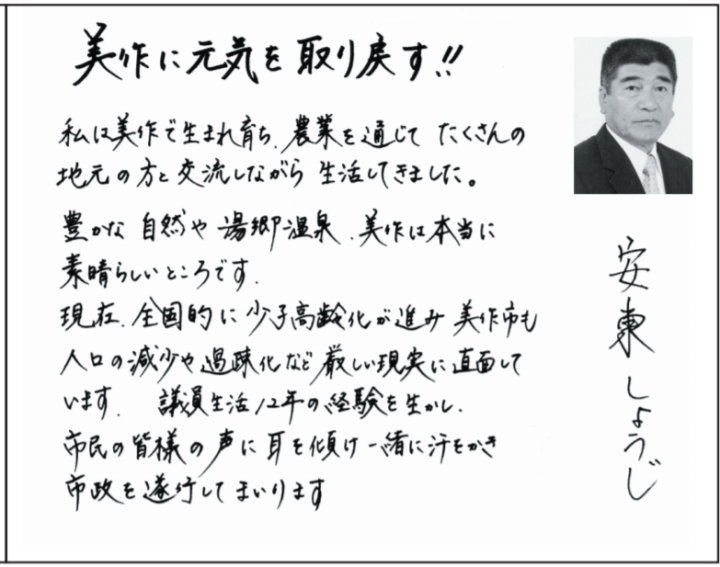 美作に元気を取り戻す!!
私は美作で生まれ育ち、農業を通じて たくさんの
地元の方と交流しながら 生活してきました。
豊かな 自然や 湯郷温泉、美作は本当に
素晴らしいところです.
現在、全国的に 少子高齢化が進み 美作市も
人口の減少や過疎化など 厳しい現実に直面して
います. 議員生活12年の経験を生かし、
市民の皆様の声に耳を傾け一緒に汗をかき
市政を遂行してまいります
安東しょうじ